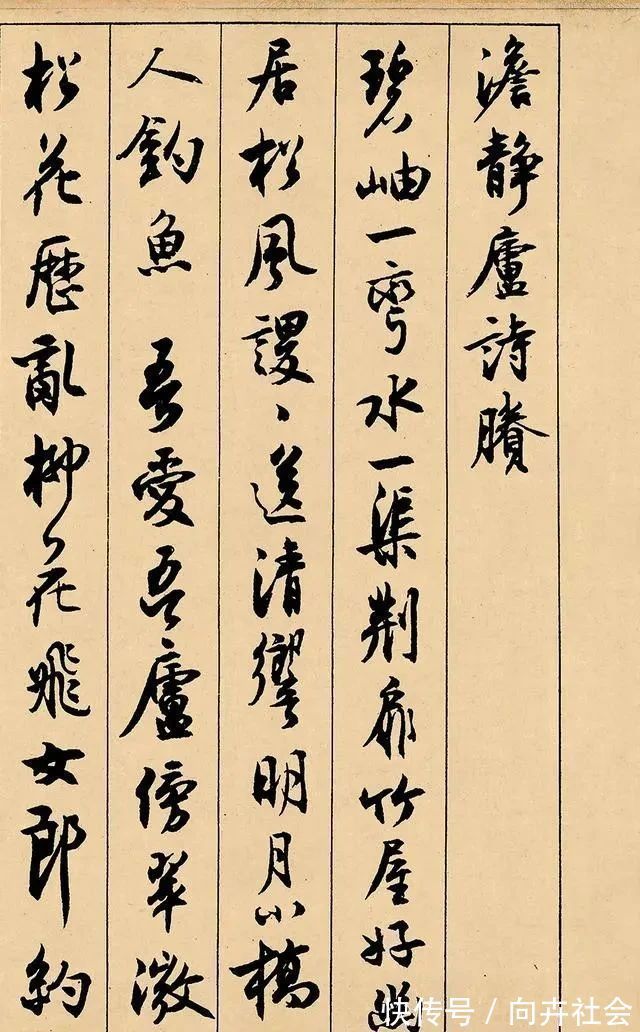 澹靜廬詩賸
碧岫一彎水一渠荆扉竹屋好幽
居松風謖〻送清響明月小橋
人釣魚 吾愛吾廬傍翠微
松花歷亂柳花飛女郎約
快传号 / 向卉社会